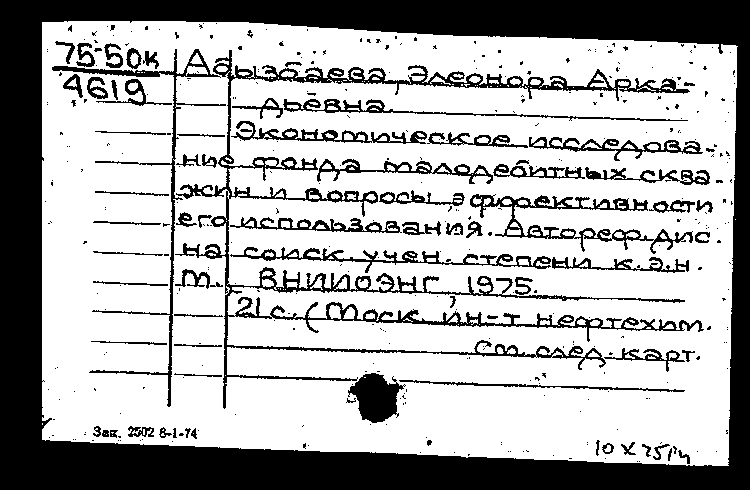 75-50к
4619
Абызбаева, Элеонора Арка-
дьевна.
Экономическое исследова-
ние фонда малодебитных сква-
жин и вопросы эффективности
его использования. Автореф. дис.
на соиск. учен. степени к.э.н.
М., ВНИИОЭНГ, 1975.
21 с. (Моск. ин-т нефтехим.
См. след. карт.
Зак. 2502 8-1-74